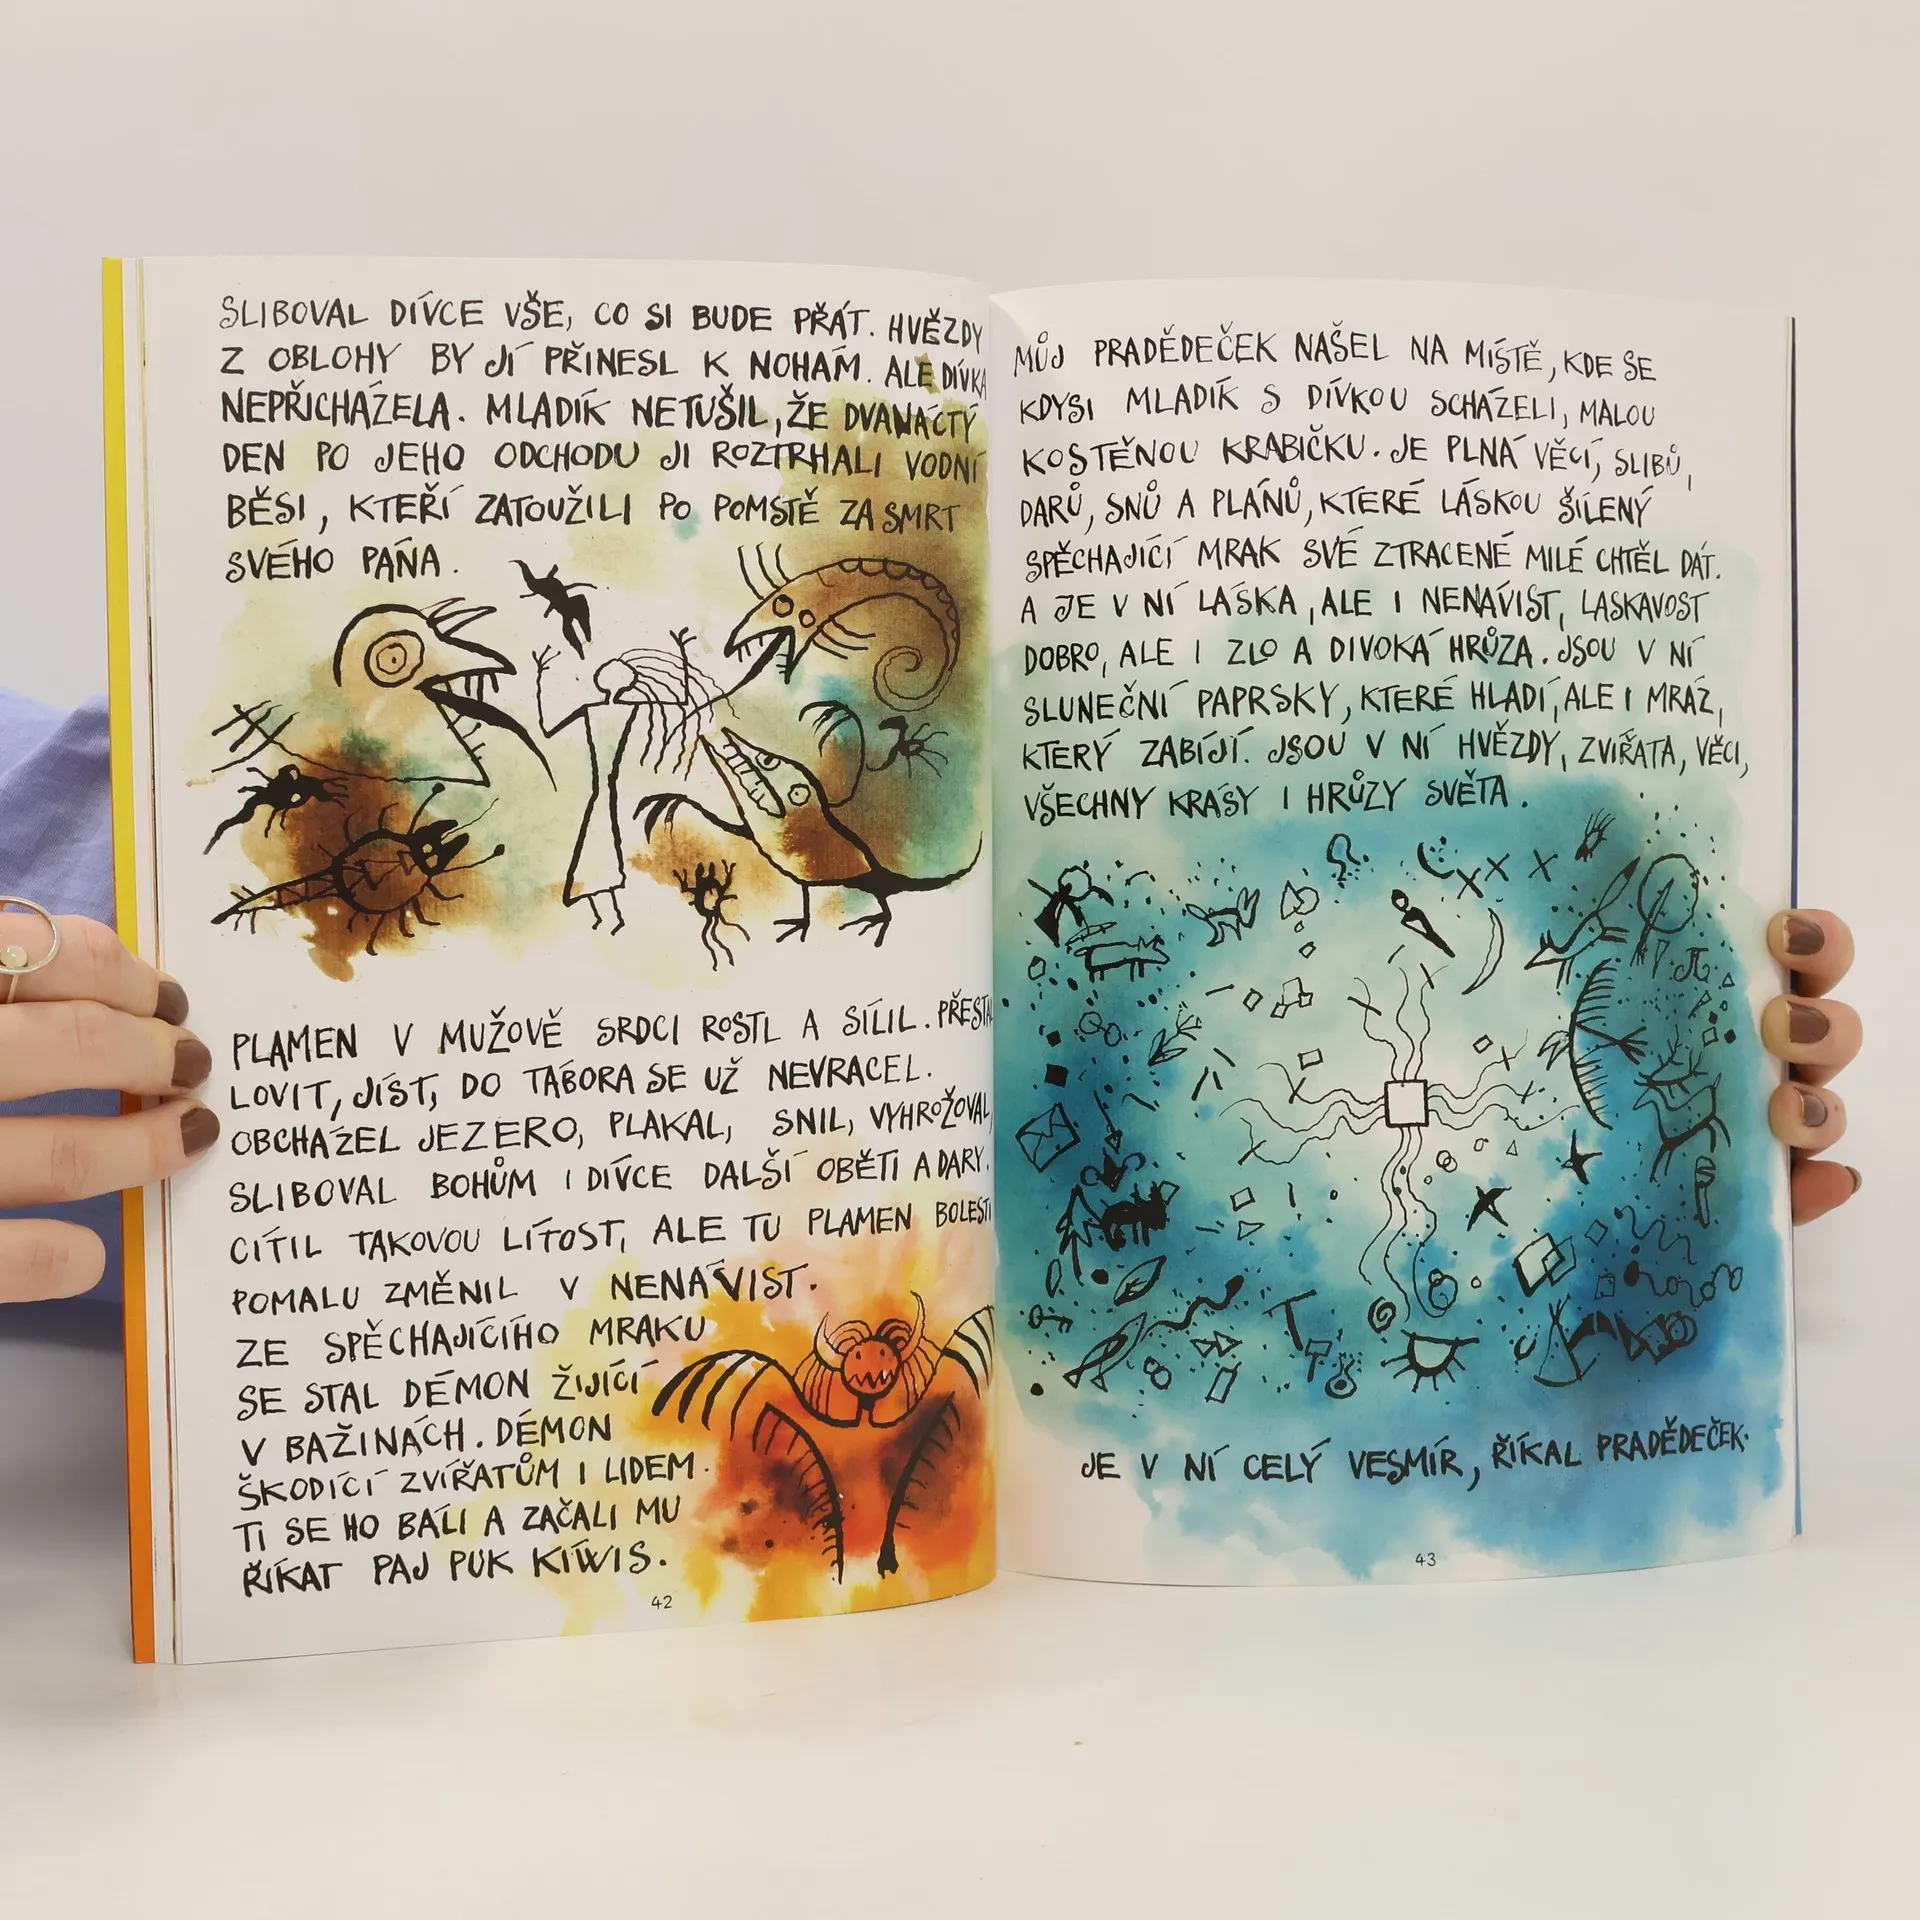 SLIBOVAL DÍVCE VŠE, CO SI BUDE PŘÁT. HVĚZDY
Z OBLOHY BY JÍ PŘINESL K NOHÁM. ALE DÍVKA
NEPŘICHÁZELA. MLADÍK NETUŠIL, ŽE DVANÁCTÝ
DEN PO JEHO ODCHODU JI ROZTRHALI VODNÍ
BĚSI, KTEŘÍ ZATOUŽILI PO POMSTĚ ZA SMRT
SVÉHO PÁNA.
PLAMEN V MUŽOVĚ SRDCI ROSTL A SÍLIL. PŘESTAL
LOVIT, JÍST, DO TÁBORA SE UŽ NEVRACEL.
OBCHÁZEL JEZERO, PLAKAL, SNIL, VYHROŽOVAL,
SLIBOVAL BOHŮM I DÍVCE DALŠÍ OBĚTI A DARY.
CÍTIL TAKOVOU LÍTOST, ALE TU PLAMEN BOLESTI
POMALU ZMĚNIL V NENÁVIST.
ZE SPĚCHAJÍCÍHO MRAKU
SE STAL DÉMON ŽIJÍCÍ
V BAŽINÁCH. DÉMON
ŠKODÍCÍ ZVÍŘATŮM I LIDEM.
TI SE HO BÁLI A ZAČALI MU
ŘÍKAT PAJ PUK KÍWIS.
42
MŮJ PRADĚDEČEK NAŠEL NA MÍSTĚ, KDE SE
KDYSI MLADÍK S DÍVKOU SCHÁZELI, MALOU
KOSTĚNOU KRABIČKU. JE PLNÁ VĚCÍ, SLIBŮ,
DARŮ, SNŮ A PLÁNŮ, KTERÉ LÁSKOU ŠÍLENÝ
SPĚCHAJÍCÍ MRAK SVÉ ZTRACENÉ MILÉ CHTĚL DÁT.
A JE V NÍ LÁSKA, ALE I NENÁVIST, LASKAVOST
DOBRO, ALE I ZLO A DIVOKÁ HRŮZA. JSOU V NÍ
SLUNEČNÍ PAPRSKY, KTERÉ HLADÍ, ALE I MRÁZ,
KTERÝ ZABÍJÍ. JSOU V NÍ HVĚZDY, ZVÍŘATA, VĚCI,
VŠECHNY KRÁSY I HRŮZY SVĚTA.
JE V NÍ CELÝ VESMÍR, ŘÍKAL PRADĚDEČEK.
43